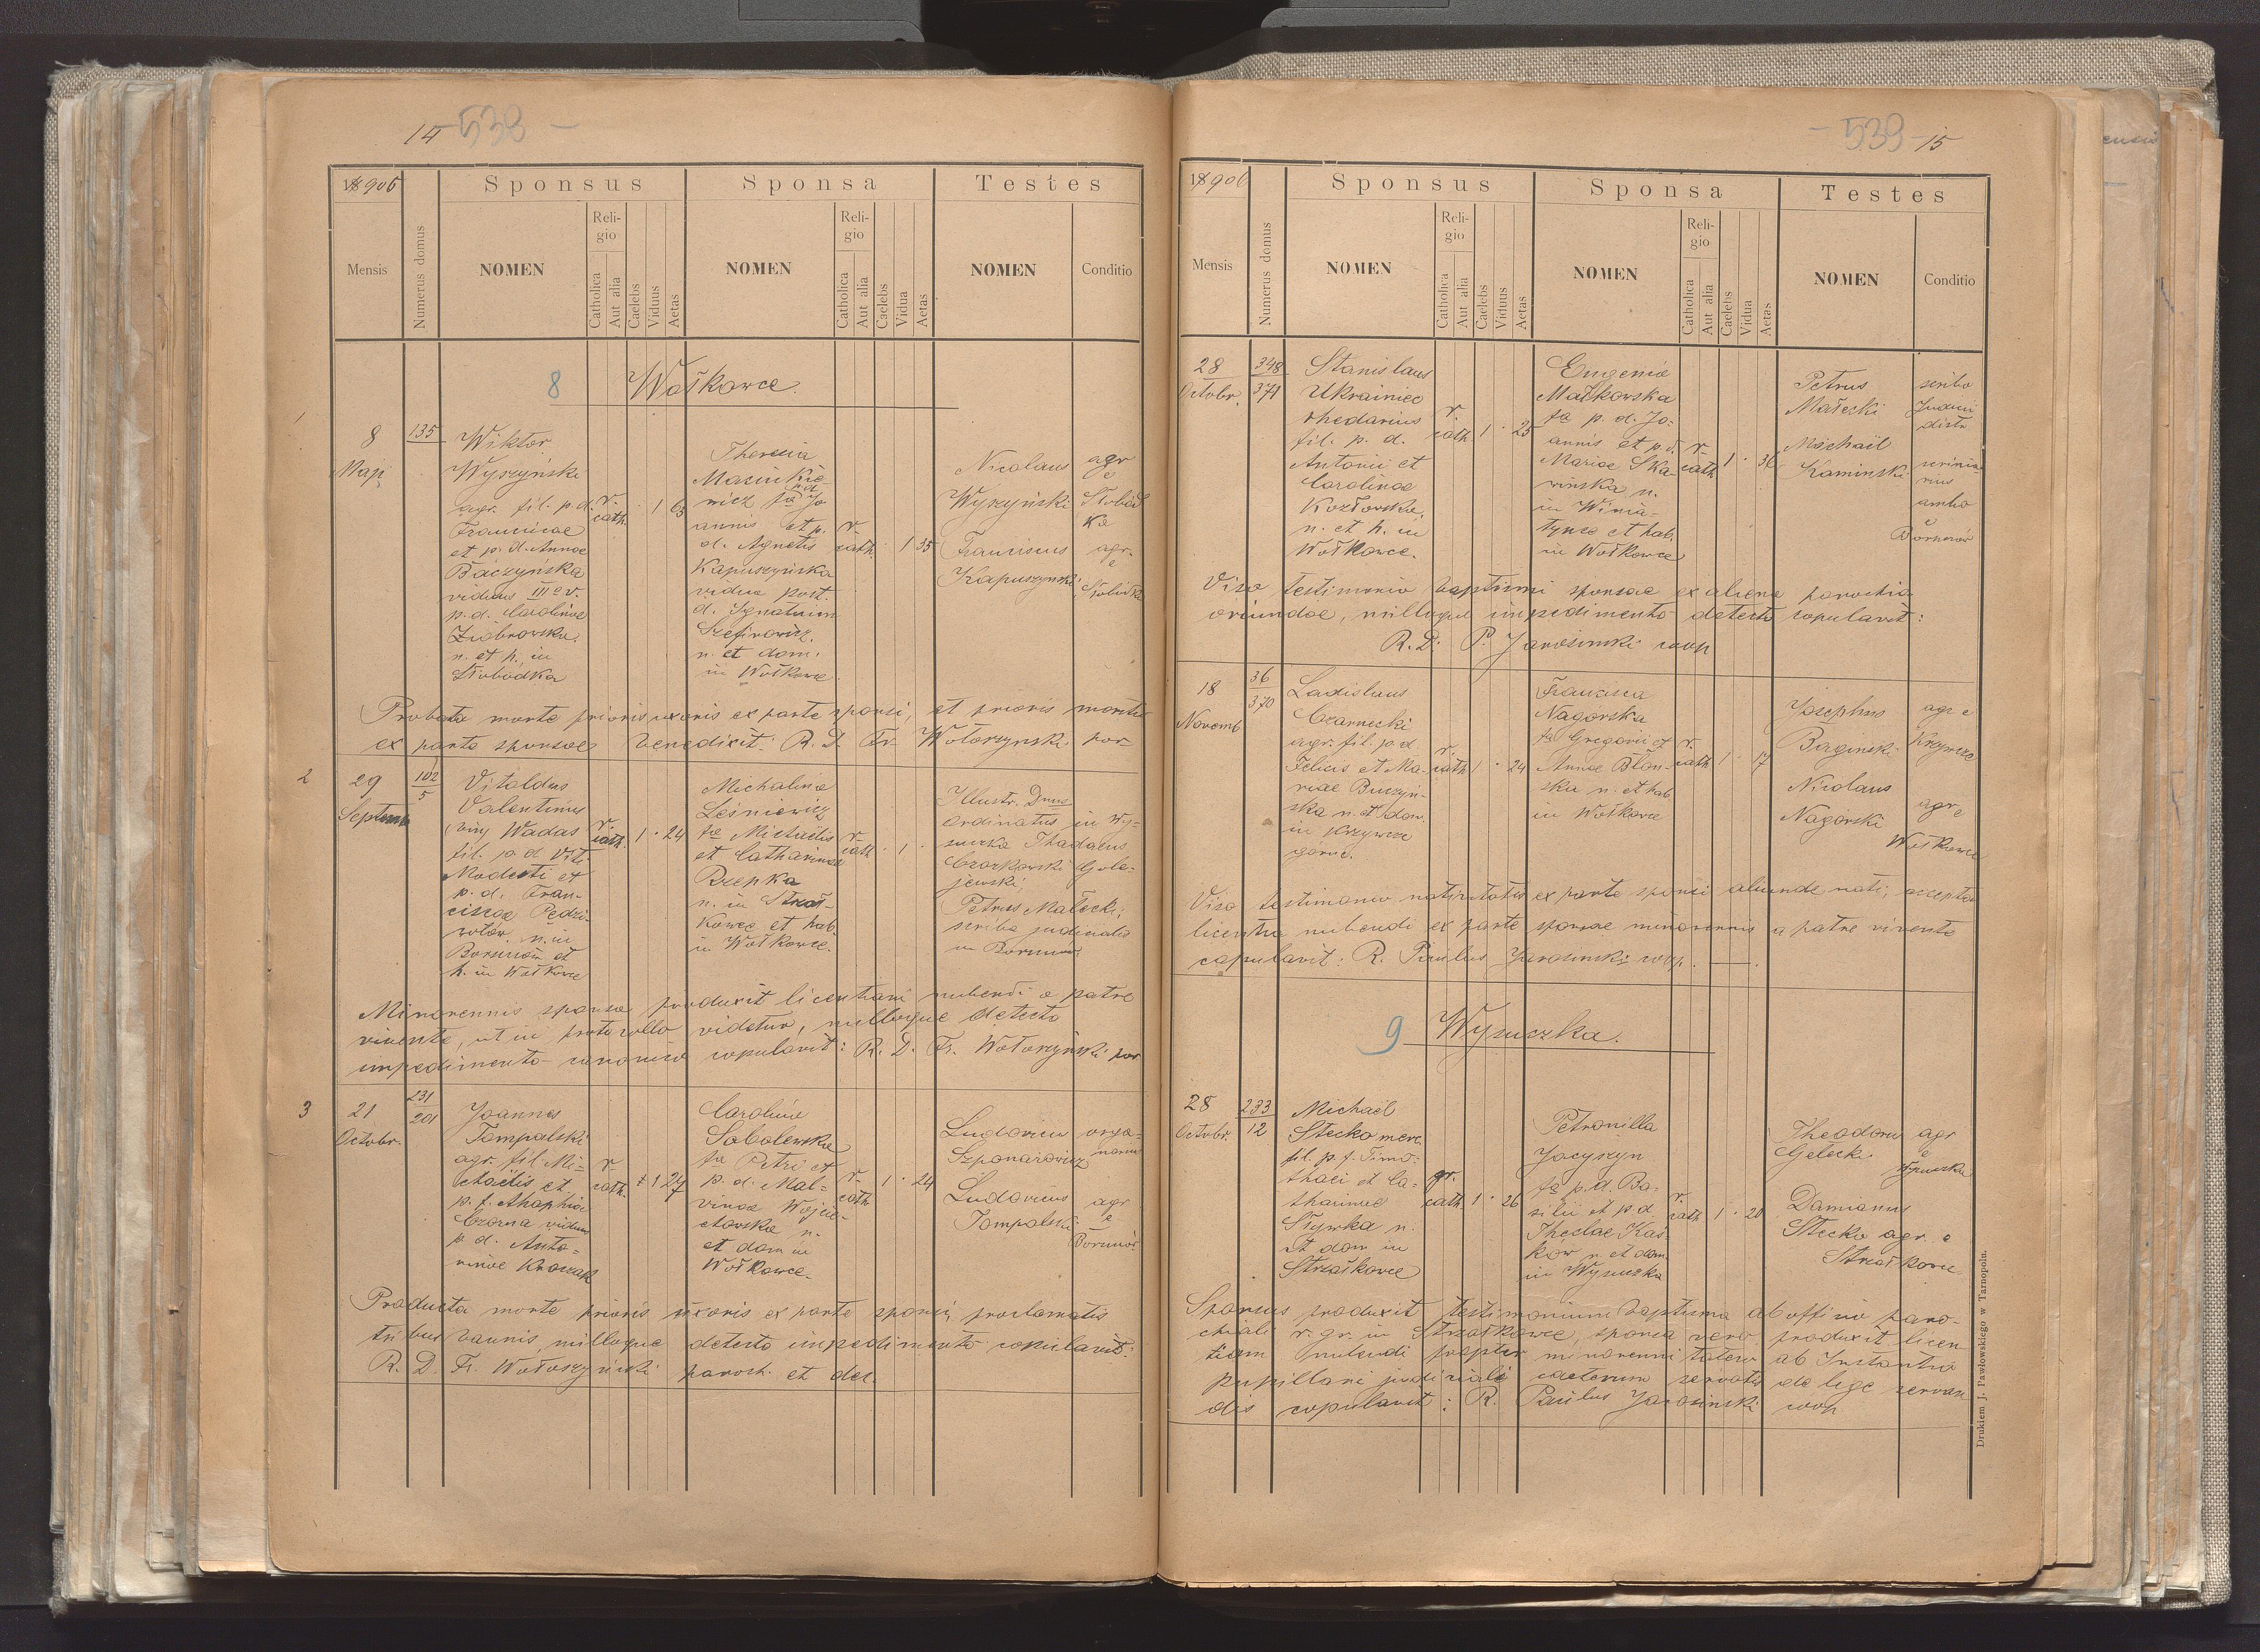 14 - 538 -
18906
Sponsus Sponsa Testes
Mensis
Numerus domus
NOMEN
Reli-
gio
Catholica
Aut alia
Caelebs
Viduus
Aetas
NOMEN
Reli-
gio
Catholica
Aut alia
Caelebs
Vidua
Aetas
NOMEN
Conditio
8 Wołkowce.
1
8
Maj
135
Wiktor
Wyszyński
agr. fil. p. d.
Franciscae
et p. d. Annae
Baczyńska
viduus III v.
p. d. Carolinae
Ziobrowska.
n. et h. in
Słobodka
r.
cath.
1
63
Theresia
Masiukie-
wicz fa p. d. Jo
annis et p.
d. Agnetis
Kapuszyńska
vidua post.
d. Ignatium
Szefirowicz.
n. et dom.
in Wołkowce.
r.
cath.
1 35
Nicolaus
Wyszyński
Franciscus
Kapuszynski
agr
e
Słobód
ka
agr.
e
Słobódka
Probata morte prioris uxoris ex parte sponsi, et prioris mariti
ex parte sponsae benedixit: R. D. Fr. Wołoszynski par
2
29
Septemb
102
5
Vitoldus
Valentinus
(viny Wadas
fil. p. d. Viti
Modesti et
p. d. Fran-
ciscae Pędzi-
wotów. n. in
Borszczów et
h. in Wołkowce
r.
cath.
1 · 24
Michalina
Leśniewicz
fa Michaelis
et Catharinae
Rzepka
n. in Strzał-
kowce et hab.
in Wołkowce.
r.
cath
· 1 ·
Illustr. Dnus
ordinatus in Wy-
suczka Thadaeus
Czarkowski Gole-
jewski,
Petrus Małecki,
scriba judicialis
in Borszczów
Minorennis sponsa produxit licentiam nubendi a patre
vivente, ut in protocollo videtur, nulloque detecto
impedimento canonico copulavit: R. D. Fr. Wołoszyński par
3
21
Octobr.
231
201
Joannes
Tompalski
agr. fil. Mi-
chaelis et
p. f. Ahaphia
Czorna viduus
p. d. Anto-
ninae Kraczak
r.
cath.
1 27
Carolina
Sobolewska
fa Petri et
p. d. Mal-
vinae Wojcie-
chowska n.
et dom in
Wołkowce.
r.
cath
1 · 24
Ludovicus
Szponarowicz
Ludovicus
Tompalski
orga-
narius
agr
e
Borszczów
Producta morte prioris uxoris ex parte sponsi, proclamatis
tribus bannis, nulloque detecto impedimento copulavit:
R. D. Fr. Wołoszyński paroch. et dec.
- 539 - 15
18906
Sponsus Sponsa Testes
Mensis
Numerus domus
NOMEN
Reli-
gio
Catholica
Aut alia
Caelebs
Viduus
Aetas
NOMEN
Reli-
gio
Catholica
Aut alia
Caelebs
Vidua
Aetas
NOMEN
Conditio
28
Octobr.
348
371
Stanislaus
Ukrainiec
rhedarius
fil. p. d.
Antonii et
Carolinae
Kozłowska,
n. et h. in
Wołkowce.
r.
cath
1 · 25
Eugenia
Małkowska
fa p. d. Jo-
annis et p. d.
Mariae Ska-
wińska n.
in Winia-
tynce et hab.
in Wołkowce
r.
cath
1 · 36
Petrus
Małecki
Michail
Kaminski
scriba
Judicii
distr
ambo
e
Borszczów
Viso testimonio baptismi sponsae ex aliena parochia
oriundae, nulloque impedimento detecto copulavit:
R. D. P. Jarosinski coop
18
Novemb
36
370
Ladislaus
Czarnecki
agr. fil. p. d.
Felicis et Ma-
riae Buczyń-
ska n. et dom.
in Krzywcze
górne.
r.
cath
1 · 24
Francisca
Nagórska
fa Gregorii et
Annae Błoń-
ska n. et hab.
in Wołkowce
r.
cath
1 17
Josephus
Baginski
Nicolaus
Nagorski
agr e
Krzywcze
agr e
Wołkowce
Viso testimonio nativitatis ex parte sponsi aliunde nati, accepta
licentia nubendi ex parte sponsae minorennis a patre vivente
copulavit: R. Paulus Jarosinski coop.
9 Wysuczka.
28
Octobr.
233
12
Michael
Stecko merc.
fil. p. f. Timo-
thaei et Ca-
tharinae
Stywka n.
et dom in
Strzałkowce
gr.
cath
1 · 26
Petronilla
Jacyszyn
fa p. d. Ba-
silii et p. d.
Theclae Kaś
ków n. et dom.
in Wysuczka
r.
cath
1 · 20
Theodorus
Gelecki
Damianus
Stecko agr. e
Strzałkowce
agr
e
Wysuczka
Sponsus produxit testimonium baptismi ab officio paro-
chiali r. gr. in Strzałkowce, sponsa vero produxit licen
tiam nubendi propter minorennitatem ab Instantia
pupillari judiciali caeterum servatis de lege servan
dis copulavit: R. Paulus Jarosinski coop.
Drukiem J. Pawłowskiego w Tarnopolu.